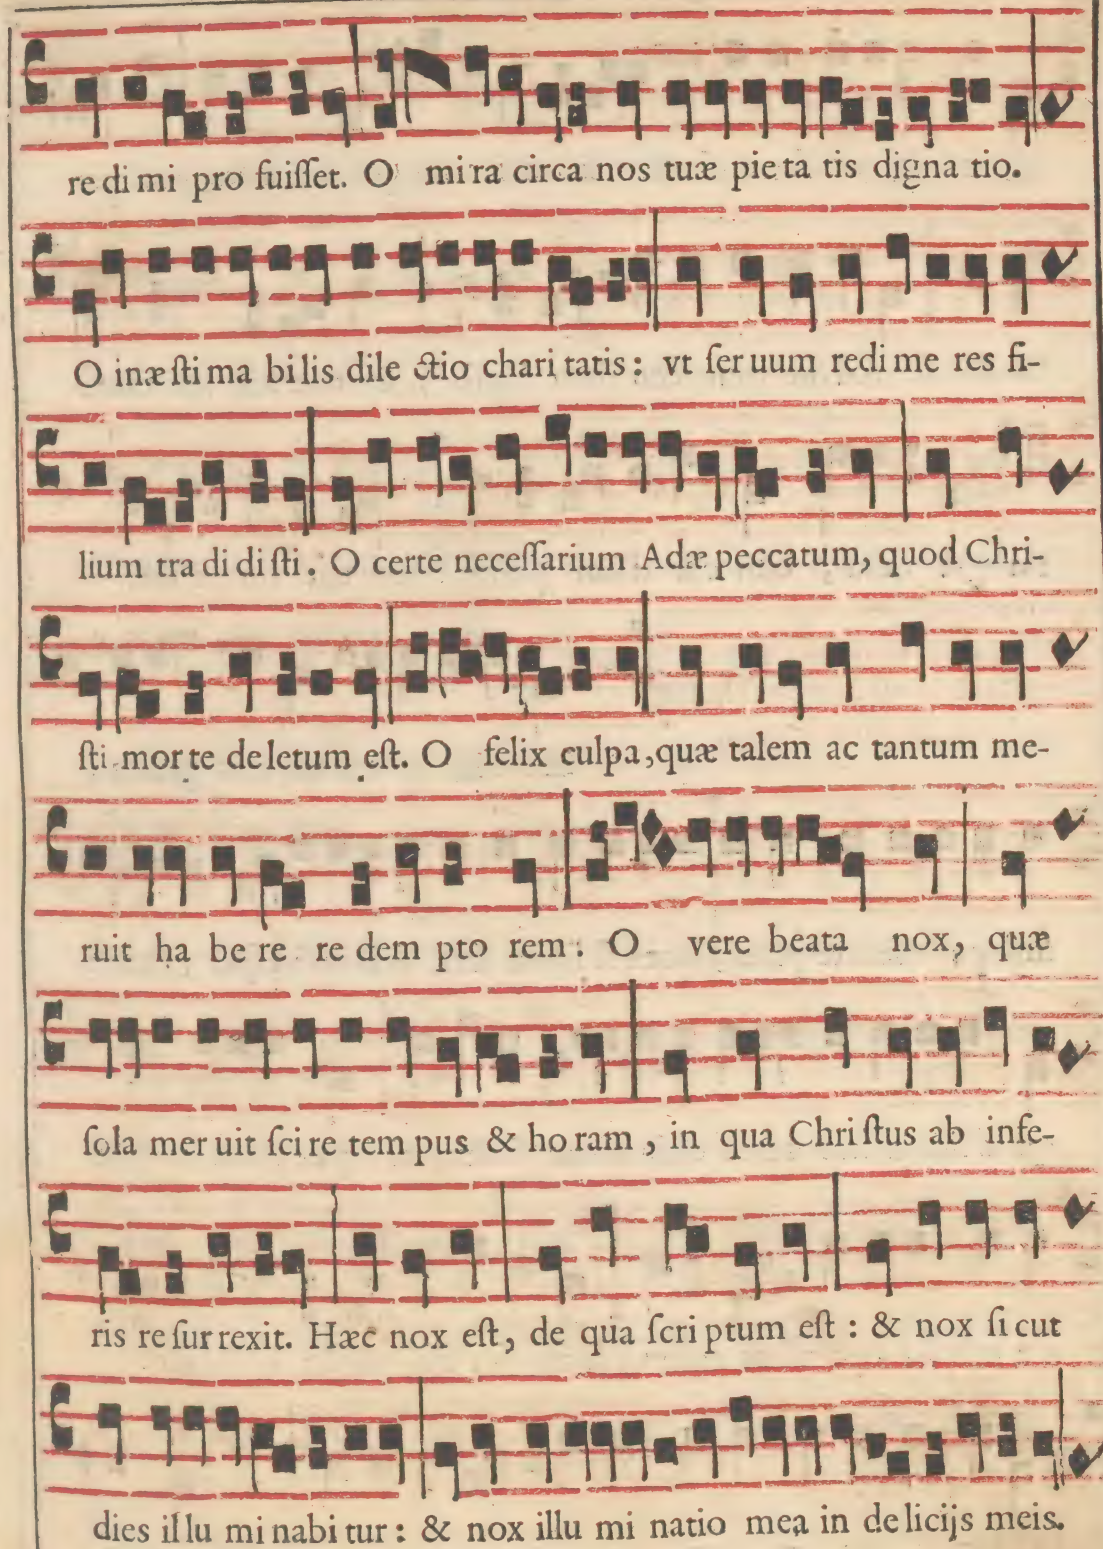 re di mi pro fuiſſet. O mira circa nos tuæ pie ta tis digna tio.
O inæ ſti ma bi lis dile ctio chari tatis: vt ſer uum redi me res fi-
lium tra di di ſti. O certe neceſſarium Adæ peccatum, quod Chri-
ſti mor te deletum eſt. O felix culpa, quæ talem ac tantum me-
ruit ha be re re dem pto rem. O vere beata nox, quæ
ſola mer uit ſci re tem pus & ho ram, in qua Chri ſtus ab infe-
ris re ſur rexit. Hæc nox eſt, de qua ſcri ptum eſt: & nox ſi cut
dies il lu mi nabi tur: & nox illu mi natio mea in de licijs meis.